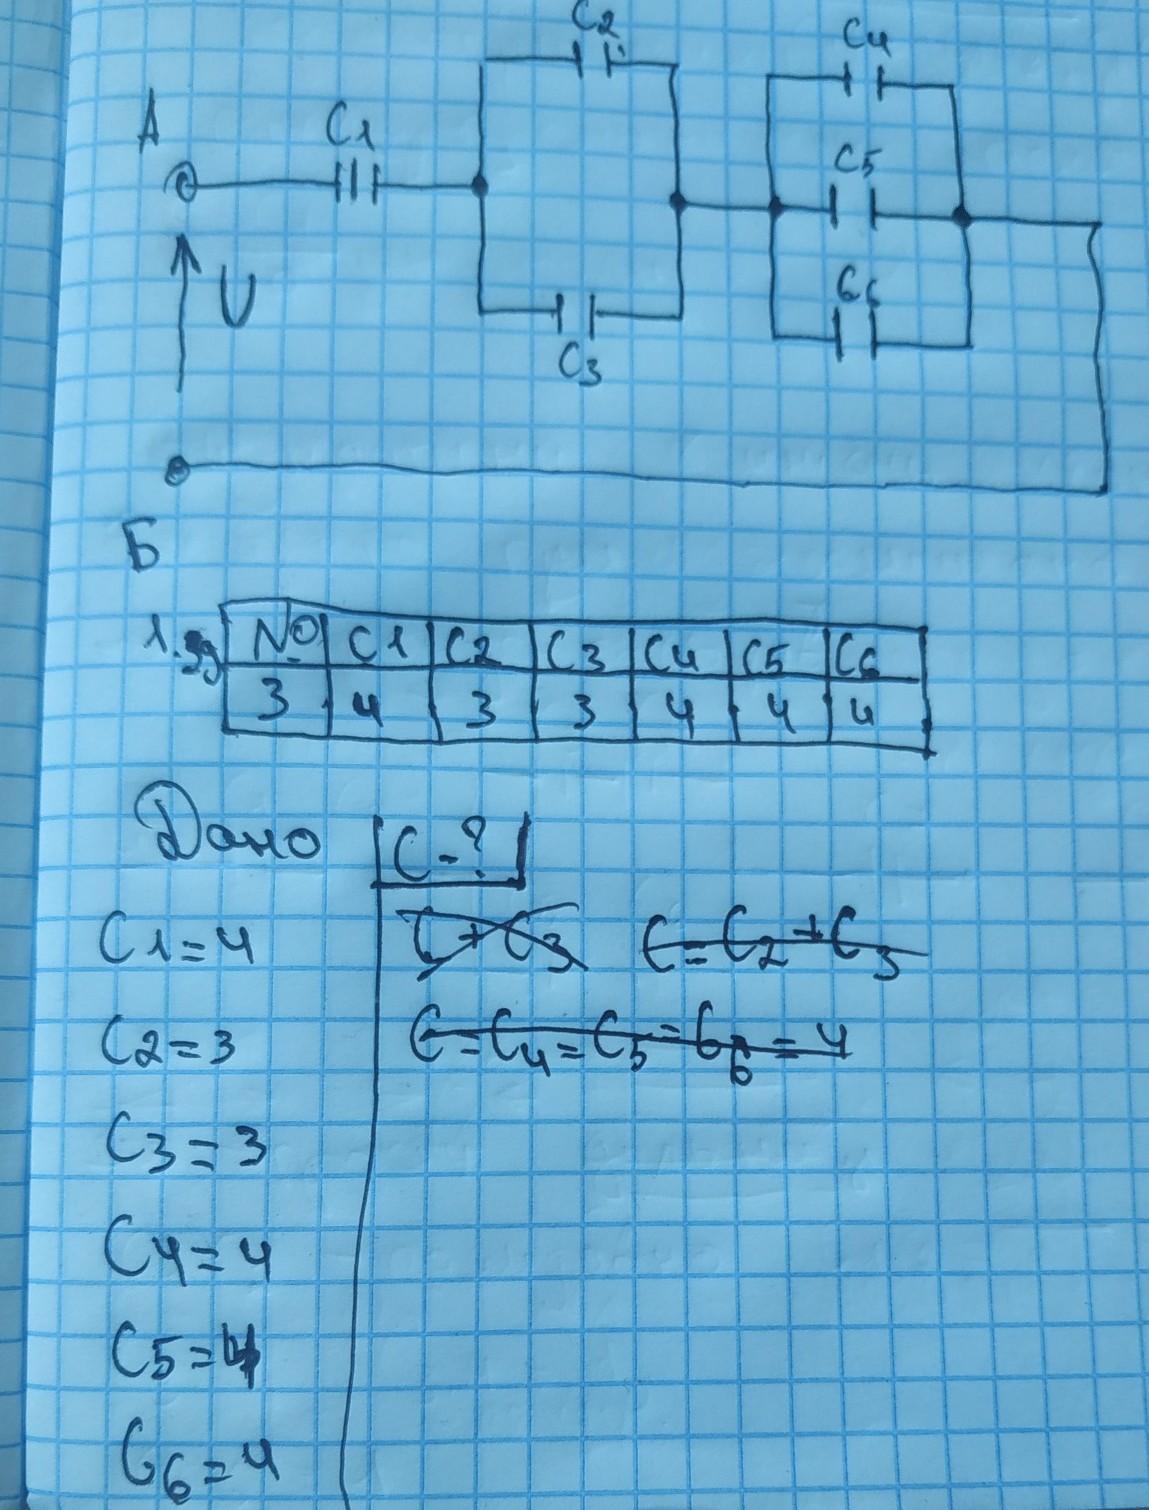 C2
C4
A
C1
C5
U
C6
C3
Б
№ C1 C2 C3 C4 C5 C6
3 4 3 3 4 4 4
Дано
C-?
C1=4
C+C3 C=C2+C3
C2=3
C=C4=C5=C6=4
C3=3
C4=4
C5=4
C6=4